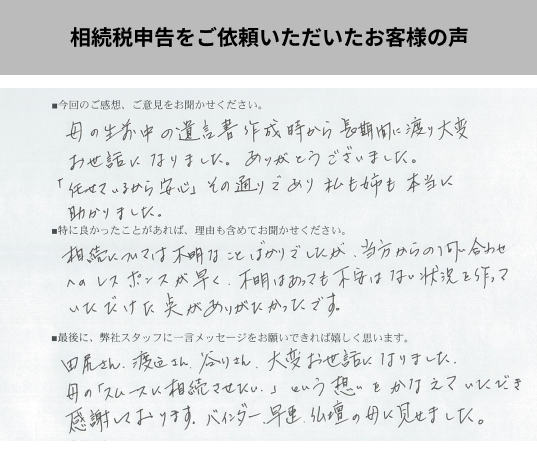 相続税申告をご依頼いただいたお客様の声
■今回のご感想、ご意見をお聞かせください。
母の生前中の遺言書作成時から長期間に渡り大変
お世話になりました。ありがとうございました。
「任せているから安心」その通りであり私も姉も本当に
助かりました。
■特に良かったことがあれば、理由も含めてお聞かせください。
相続については不明なことばかりでしたが、当方からの問い合わせ
へのレスポンスが早く、不明はあっても不安はない状況を作って
いただけた点がありがたかったです。
■最後に、弊社スタッフに一言メッセージをお願いできれば嬉しく思います。
田尻さん、渡辺さん、谷川さん、大変お世話になりました。
母の「スムースに相続させたい。」という想いをかなえていただき
感謝しております。バインダー、早速、仏壇の母に見せました。